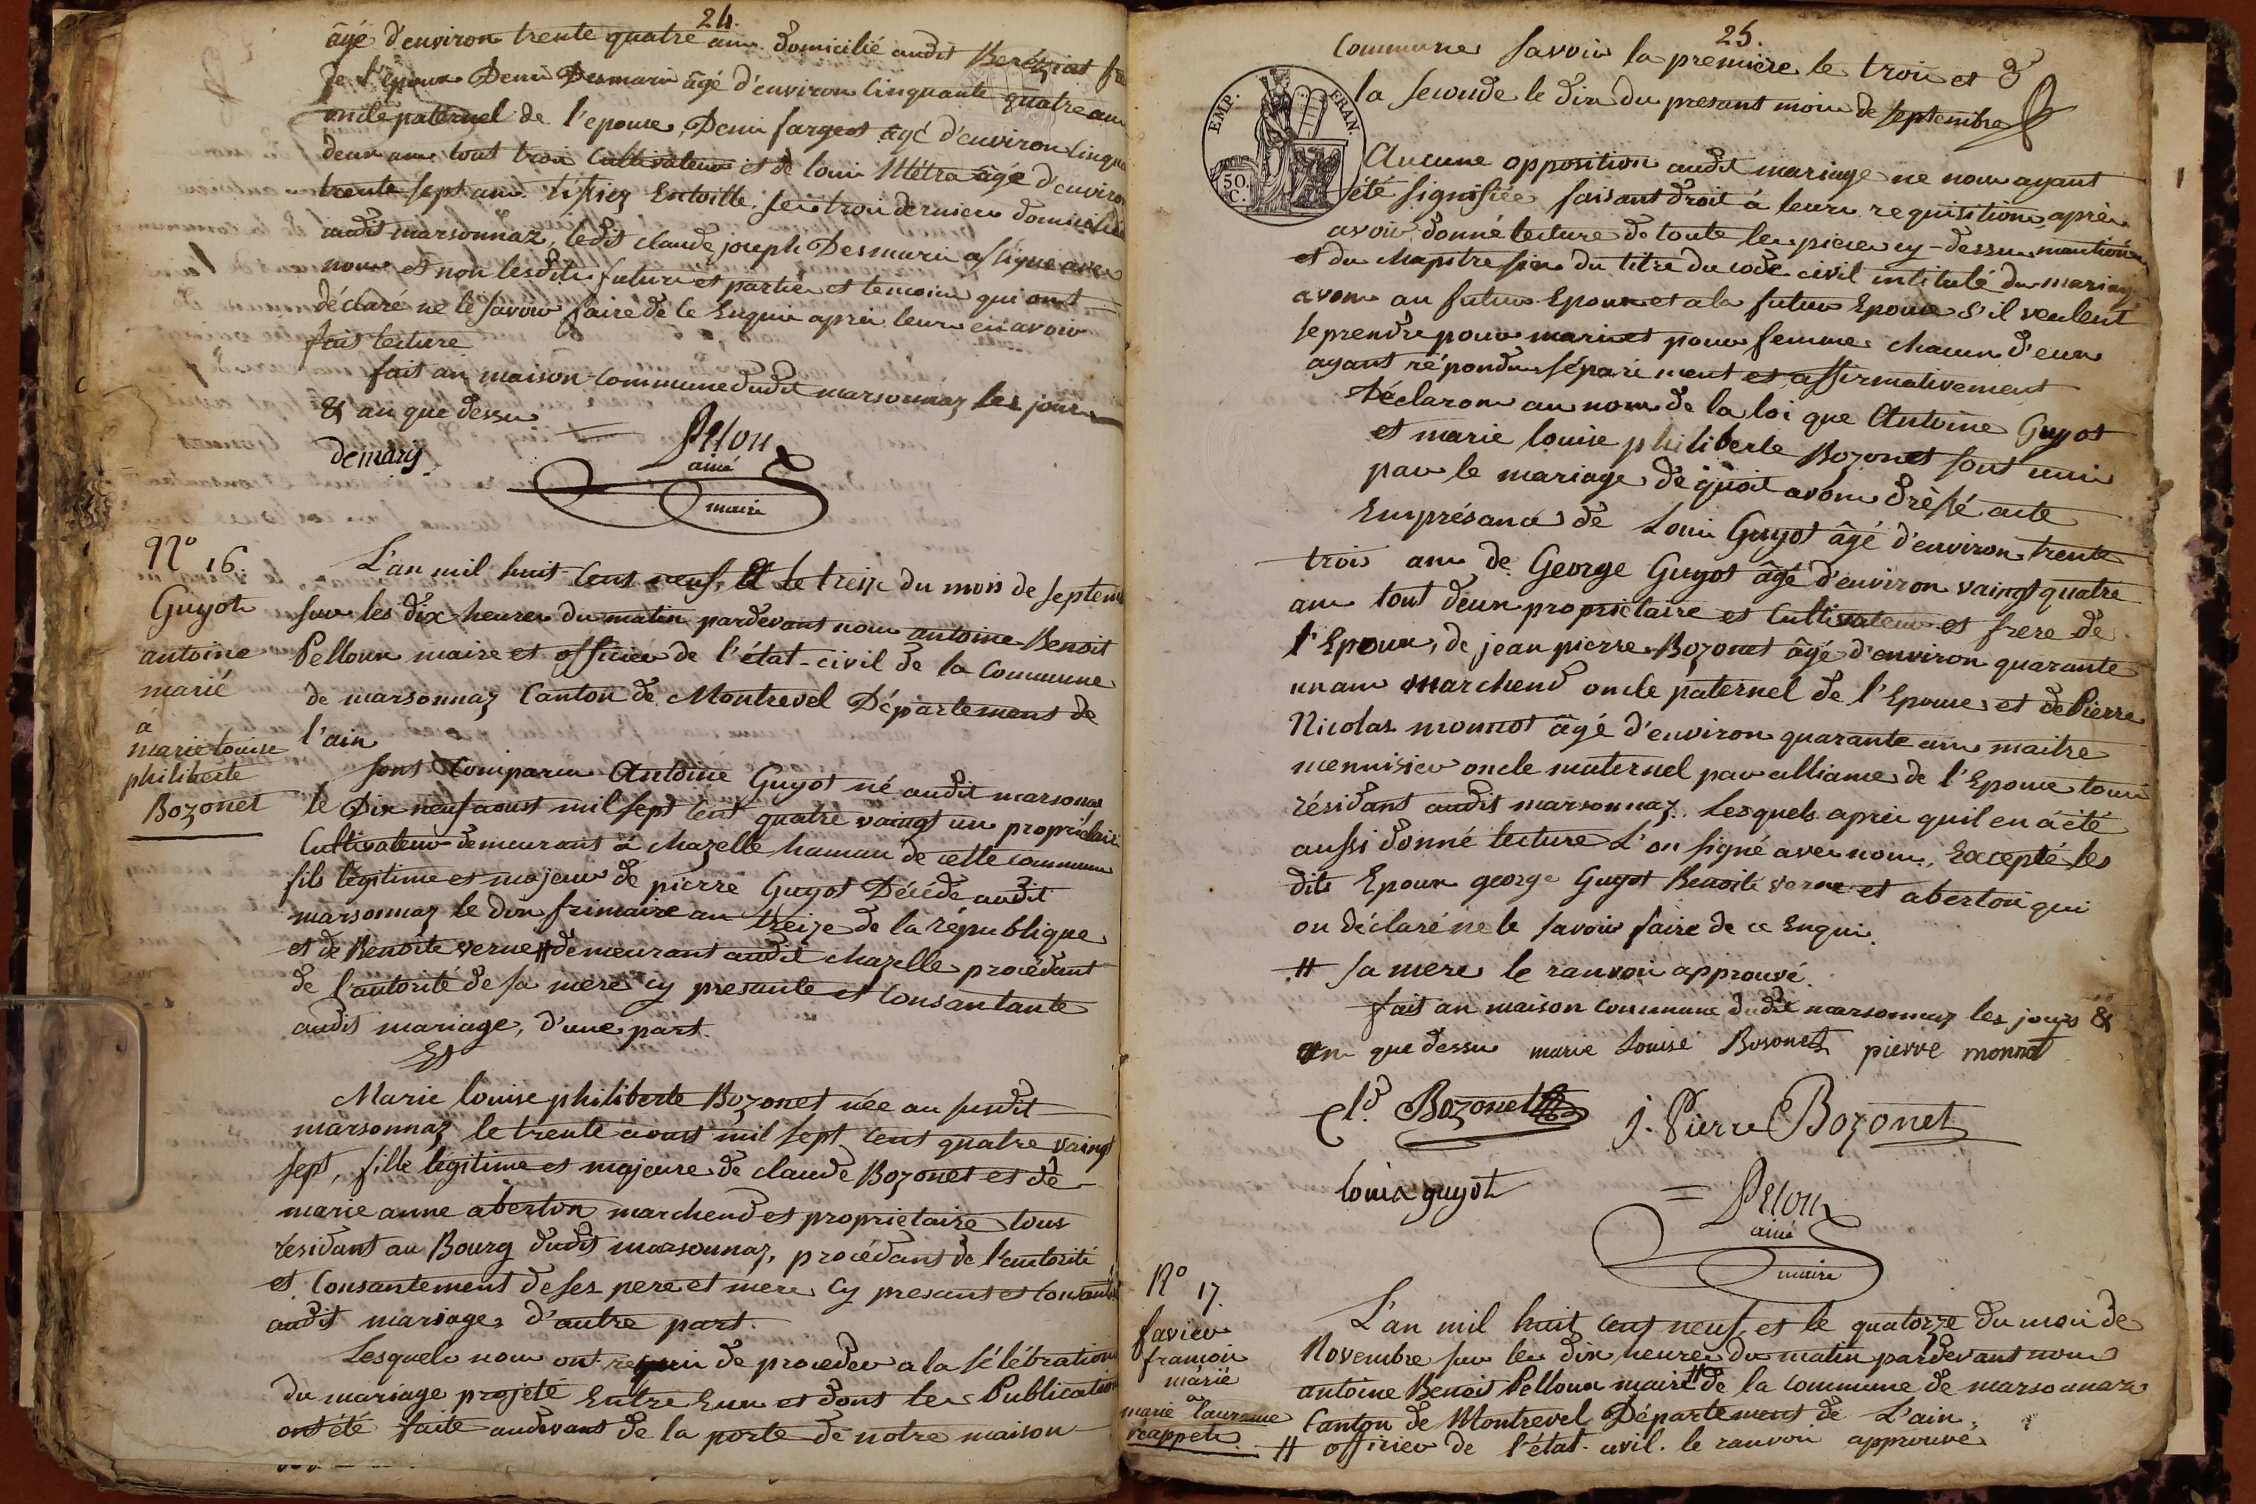 24.
âgé d'environ trente quatre ans domicilié audit Beréziat
de l'epoux Denis Desmaris âgé d'environ Cinquante quatre ans
oncle paternel de l'epouse, Denis fargeot âgé d'environ
deux ans tout trois Cultivateurs et de louis Métra âgé d'environ
trente sept ans tissier Entoille, ses trois derniers domiciliés
audit marsonnaz, ledit claude joseph Desmaris a signé avec
nous et non lesdits futurs et parties et temoins qui ont
déclaré ne le savoir faire de ce Enquis apres leurs en avoir
fait lecture
fait an maison-commune dudit marsonnaz les jours
& an que dessus
demary
Pelou
ainé
maire
N° 16.
Guyot
antoine
marié
a
marie louise
philiberte
Bozonet
L'an mil huit Cent neuf, Et le treize du mois de septem
sur les dix heures du matin pardevant nous antoine Benoit
Pelloux maire et officier de l'état-civil de la Commune
de marsonnaz Canton de Montrevel Département de
l'ain
sont Comparus Antoine Guyot né audit marsonnas
le Dix neuf aoust mil sept Cent quatre vaingt un propriétaire
Cultivateur demeurant à chazelle hamau de cette commune
fils légitime et majeur de pierre Guyot Décédé audit
marsonnaz le dix frimaire an treize de la république
et de Benoite verne # demeurant audit chazelle procédant
de l'autorité de sa mere cy presante et Consantante
audit mariage, d'une part.
Et
Marie louise philiberte Bozonet née au susdit
marsonnaz le trente aoust mil sept Cent quatre vaingt
sept, fille légitime et majeure de claude Bozonet et de
marie anne aberton marchend et propriétaire tous
résidant au Bourg dudit marsonnaz, procédant de l'autorité
et Consantement de ses pere et mere cy presants et Consantés
audit mariage, d'autre part.
Lesquels nous ont requis de proceder a la sélébration
du mariage projeté Entre Eux et dont les Publication
ont été faite audevant de la porte de notre maison
25.
Commune Savoir la premiere le trois et &
la seconde le dix du presant mois de septembre
EMP. FRAN.
50.
C.
Aucune opposition audit mariage ne nous ayant
été signifiée faisant droit à leurs requisition, après
avoir donné lecture de toute les pieces cy-dessus mantion
et du chapitre six du titre du code civil intitulé du mariage
avons au futur Epoux et a la futur Epouse s'il veulent
se prendre pour mari et pour femme chacun d'eux
ayant répondu séparément et affirmativement
Déclarons au nom de la loi que Antoine Guyot
et marie louise philiberte Bozonet sont unis
par le mariage de quoit avons drèssé acte
Enprésance de Louis Guyot âgé d'environ trente
trois ans de George Guyot âgé d'environ vaingt quatre
ans tout deux propriétaire et Cultivateur et frere de
l'Epoux, de jean pierre Bozonet âgé d'environ quarante
un ans marchend oncle paternel de l'Epouse et de Pierre
Nicolas monnot âgé d'environ quarante ans maitre
mennisier oncle maternel par alliance de l'Epouse tous
résidant audit marsonnaz. Lesquels après quil en a été
aussi donné lecture L'on signé avec nous, Excepté les
dits Epoux george Guyot Benoite verne et aberton qui
on déclaré ne le savoir faire de ce Enquis.
# sa mere le ranvoi approuvé.
fait an maison commune dudit marsonnaz les jours &
an que dessus marie Louise Bosonet pierre monnot
Cld. Bozonet
J. Pierre Bozonet
louis guyot
Pelou
ainé
maire
N° 17.
favier
francois
marié
a
marie laurance
réappet
L'an mil huit Cent neuf, et le quatorze du mois de
Novembre sur les dix heures du matin pardevant nous
antoine Benoit Pelloux maire # de la commune de marsonnaz
Canton de Montrevel Département de L'ain.
# officier de l'état-civil. le ranvoi approuvé